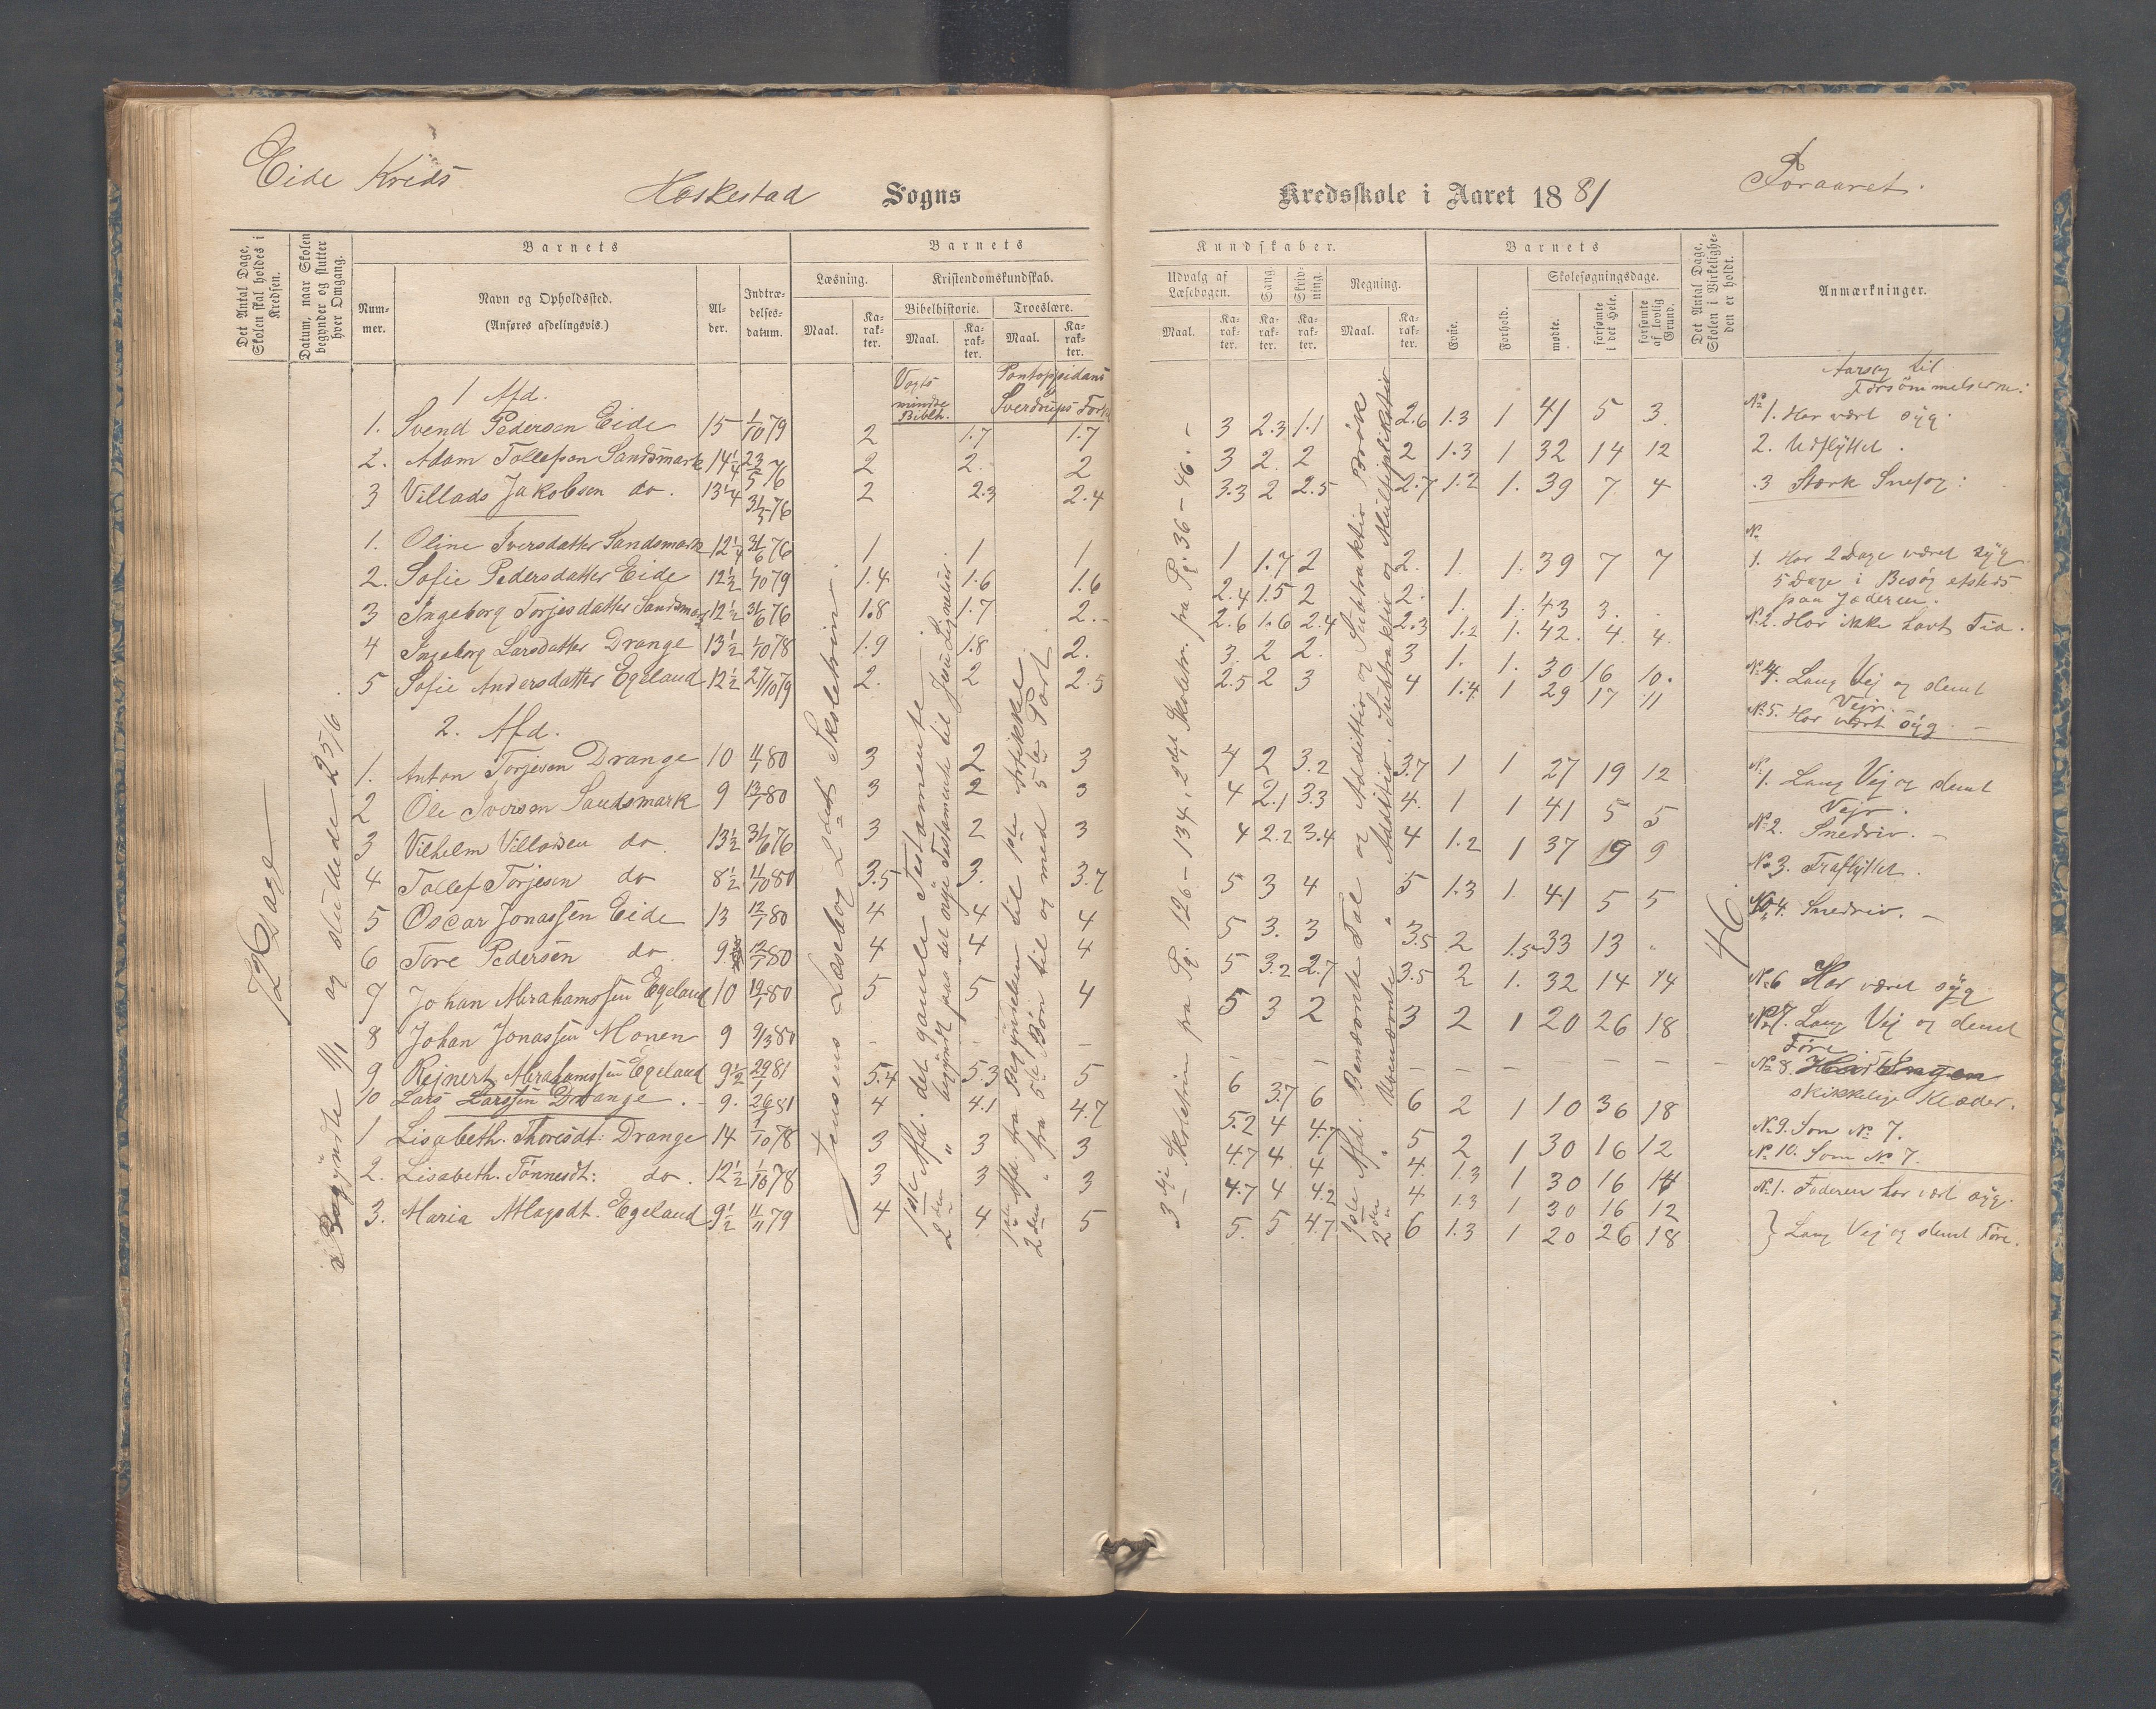 Eide Kreds
Heskestad Sogns
Kredsskole i Aaret 1881
Foraaret.
Det Antal Dage, Skolen skal holdes i Kredsen.
Datum, naar Skolen begynder og slutter hver Omgang.
Barnets
Barnets
Nummer.
Navn og Opholdssted.
(Anføres afdelingsvis.)
Alder.
Indtrædelsesdatum.
Læsning.
Kristendomskundskab.
Bibelhistorie.
Troeslære.
Maal.
Karakter.
Maal.
Karakter.
Maal.
Karakter.
Kundskaber.
Barnets
Udvalg af Læsebogen.
Sang.
Skrivning.
Regning.
Evne.
Forhold.
Skolesøgningsdage.
Maal.
Karakter.
Karakter.
Karakter.
Maal.
Karakter.
mødte.
forsømte i det Hele.
forsømte af lovlig Grund.
Det Antal Dage, Skolen i Virkeligheden er holdt.
Anmærkninger.
726 Dage
Begyndte 11/1 og sluttede 25/6.
Vogts mindre Biblh.
Pontoppidans
Sverdrups Fork
Jensens Læsebog 2det Skoletrin.
1ste Afd. det gamle Testamente
2den " begyndt paa det nye Testamente til Jesu Lignelser.
1ste Afd. fra Begyndelsen til 1ste Artikkel
2den " fra 5te Bøn til og med 5te Part
3dje Skoletrin fra Pg. 126 – 134, 2det Skoletr. fra Pg. 36 – 46. –
1ste Afd. Benævnte Tal og Addition og Subtraktion Brøk
2den " Ubenævnte " Addition, Subtraktion og Multiplikation
46.
1 Afd.
Aarsag til
Forsömmelserne:
1. Svend Pedersen Eide 15 1/10 79 2 1.7 1.7 3 2.3 1.1 2.6 1.3 1 41 5 3. No 1. Har vært syg.
2. Adam Tollefsen Sandsmark 14 1/4 23/5 76 2 2. 2 3 2. 2 2 1.3 1 32 14 12 2. Udflyttet.
3 Villads Jakobsen do. 13 1/4 31/5 76 2 2.3 2.4 3.3 2 2.5 2.7 1.2 1. 39 7 4 .3 Stærk Snefog:
1. Oline Iversdatter Sandsmark 12 1/4 31/6 76 1 1 1 1 1.7 2 2. 1. 1. 39 7 7 No 1. Har 2 Dage været syg
5 Dage i Besög afsteds
paa Jæderen.
2. Sofie Pedersdatter Eide 12 1/2 1/10 79 1.4 1.6 1.6 2.4 1.5 2 2. 1. 1. 43 3. . No 2. Har ikke havt Tid.
3 Ingeborg Torjesdatter Sandsmark 12 1/2 31/6 76 1.8 1.7 2. 2.6 1.6 2.4 2.3 1.2 1. 42. 4. 4.
4 Ingeborg Larsdatter Drange 13 1/2 1/10 78 1.9 1.8 2. 3. 2 2. 3 1. 1. 30 16 10. No 4. Lang Vej og slemt
Vejr.
5 Sofie Andersdatter Egeland 12 1/2 27/10 79 2. 2 2.5 2.5 2 3 4 1.4 1 29 17 11 No 5. Har vært syg. –
2. Afd.
1. Anton Torjesen Drange 10 11/1 80 3 2. 3 4 2 3.2 3.7 1 1 27 19 12 No 1. Lang Vej og slemt
Vejr.
2 Ole Iversen Sandsmark 9 13/1 80 3 2 3 4 2.1 3.3 4. 1 1 41 5 5 No 2. Snedriv. –
3 Vilhelm Villadsen do. 13 1/2 31/6 76 3 2 3 4 2.2 3.4 4 1.2 1 37 19 9 No 3. Fraflyttet.
4 Tollef Torjesen do 8 1/2 4/10 80 3.5 3. 3.7 5 3 4 5 1.3 1. 41 5 5 No 4. Snedriv. –
5 Oscar Jonassen Eide 13 12/1 80 4 4 4 5 3. 3 3.5 2 1.5 33 13 .
6 Tore Pedersen do. 9 12/1 80 4 4 4 5 3.2 2.7 3.5 2 1. 32 14 14 No 6 Har været syg
7 Johan Abrahamssen Egeland 10 19/1 80 5 5 4 5 3 2 3 2 1 20 26 18 No 7. Lang Vej og slemt
Føre.
8 Johan Jonassen Monen 9 9/3 80 – – – – – – – – – – – No 8. Har Ingen
skikkelige Klæder.
9 Rejnert Abrahamssen Egeland 9 1/2 29/1 81 5.4 5.3 5 6 3.7 6 6 2 1 10 36 18 No 9. Som No 7.
10 Lars Larssen Drange. 9. 26/1 81 4 4.1 4.7 5.2 4 4.7 5 2 1 30 16 12 No 10. Som No 7.
1 Lisabeth Thoresdt: Drange 14 1/10 78 3 3 3 4.7 4 4 4. 1.3 1 30 16 14 No 1. Faderen har vært syg.
2. Lisabeth Tönnesdt: do. 12 1/2 1/10 78 3 3 3 4.7 4 4.2 4. 1.3 1 30 16 12
3. Maria Atlagsdt. Egeland 9 1/2 11/11 79 4 4 5 5. 5 4.7 6 1.3 1 20 26 18 } Lang Vej og slemt Føre.